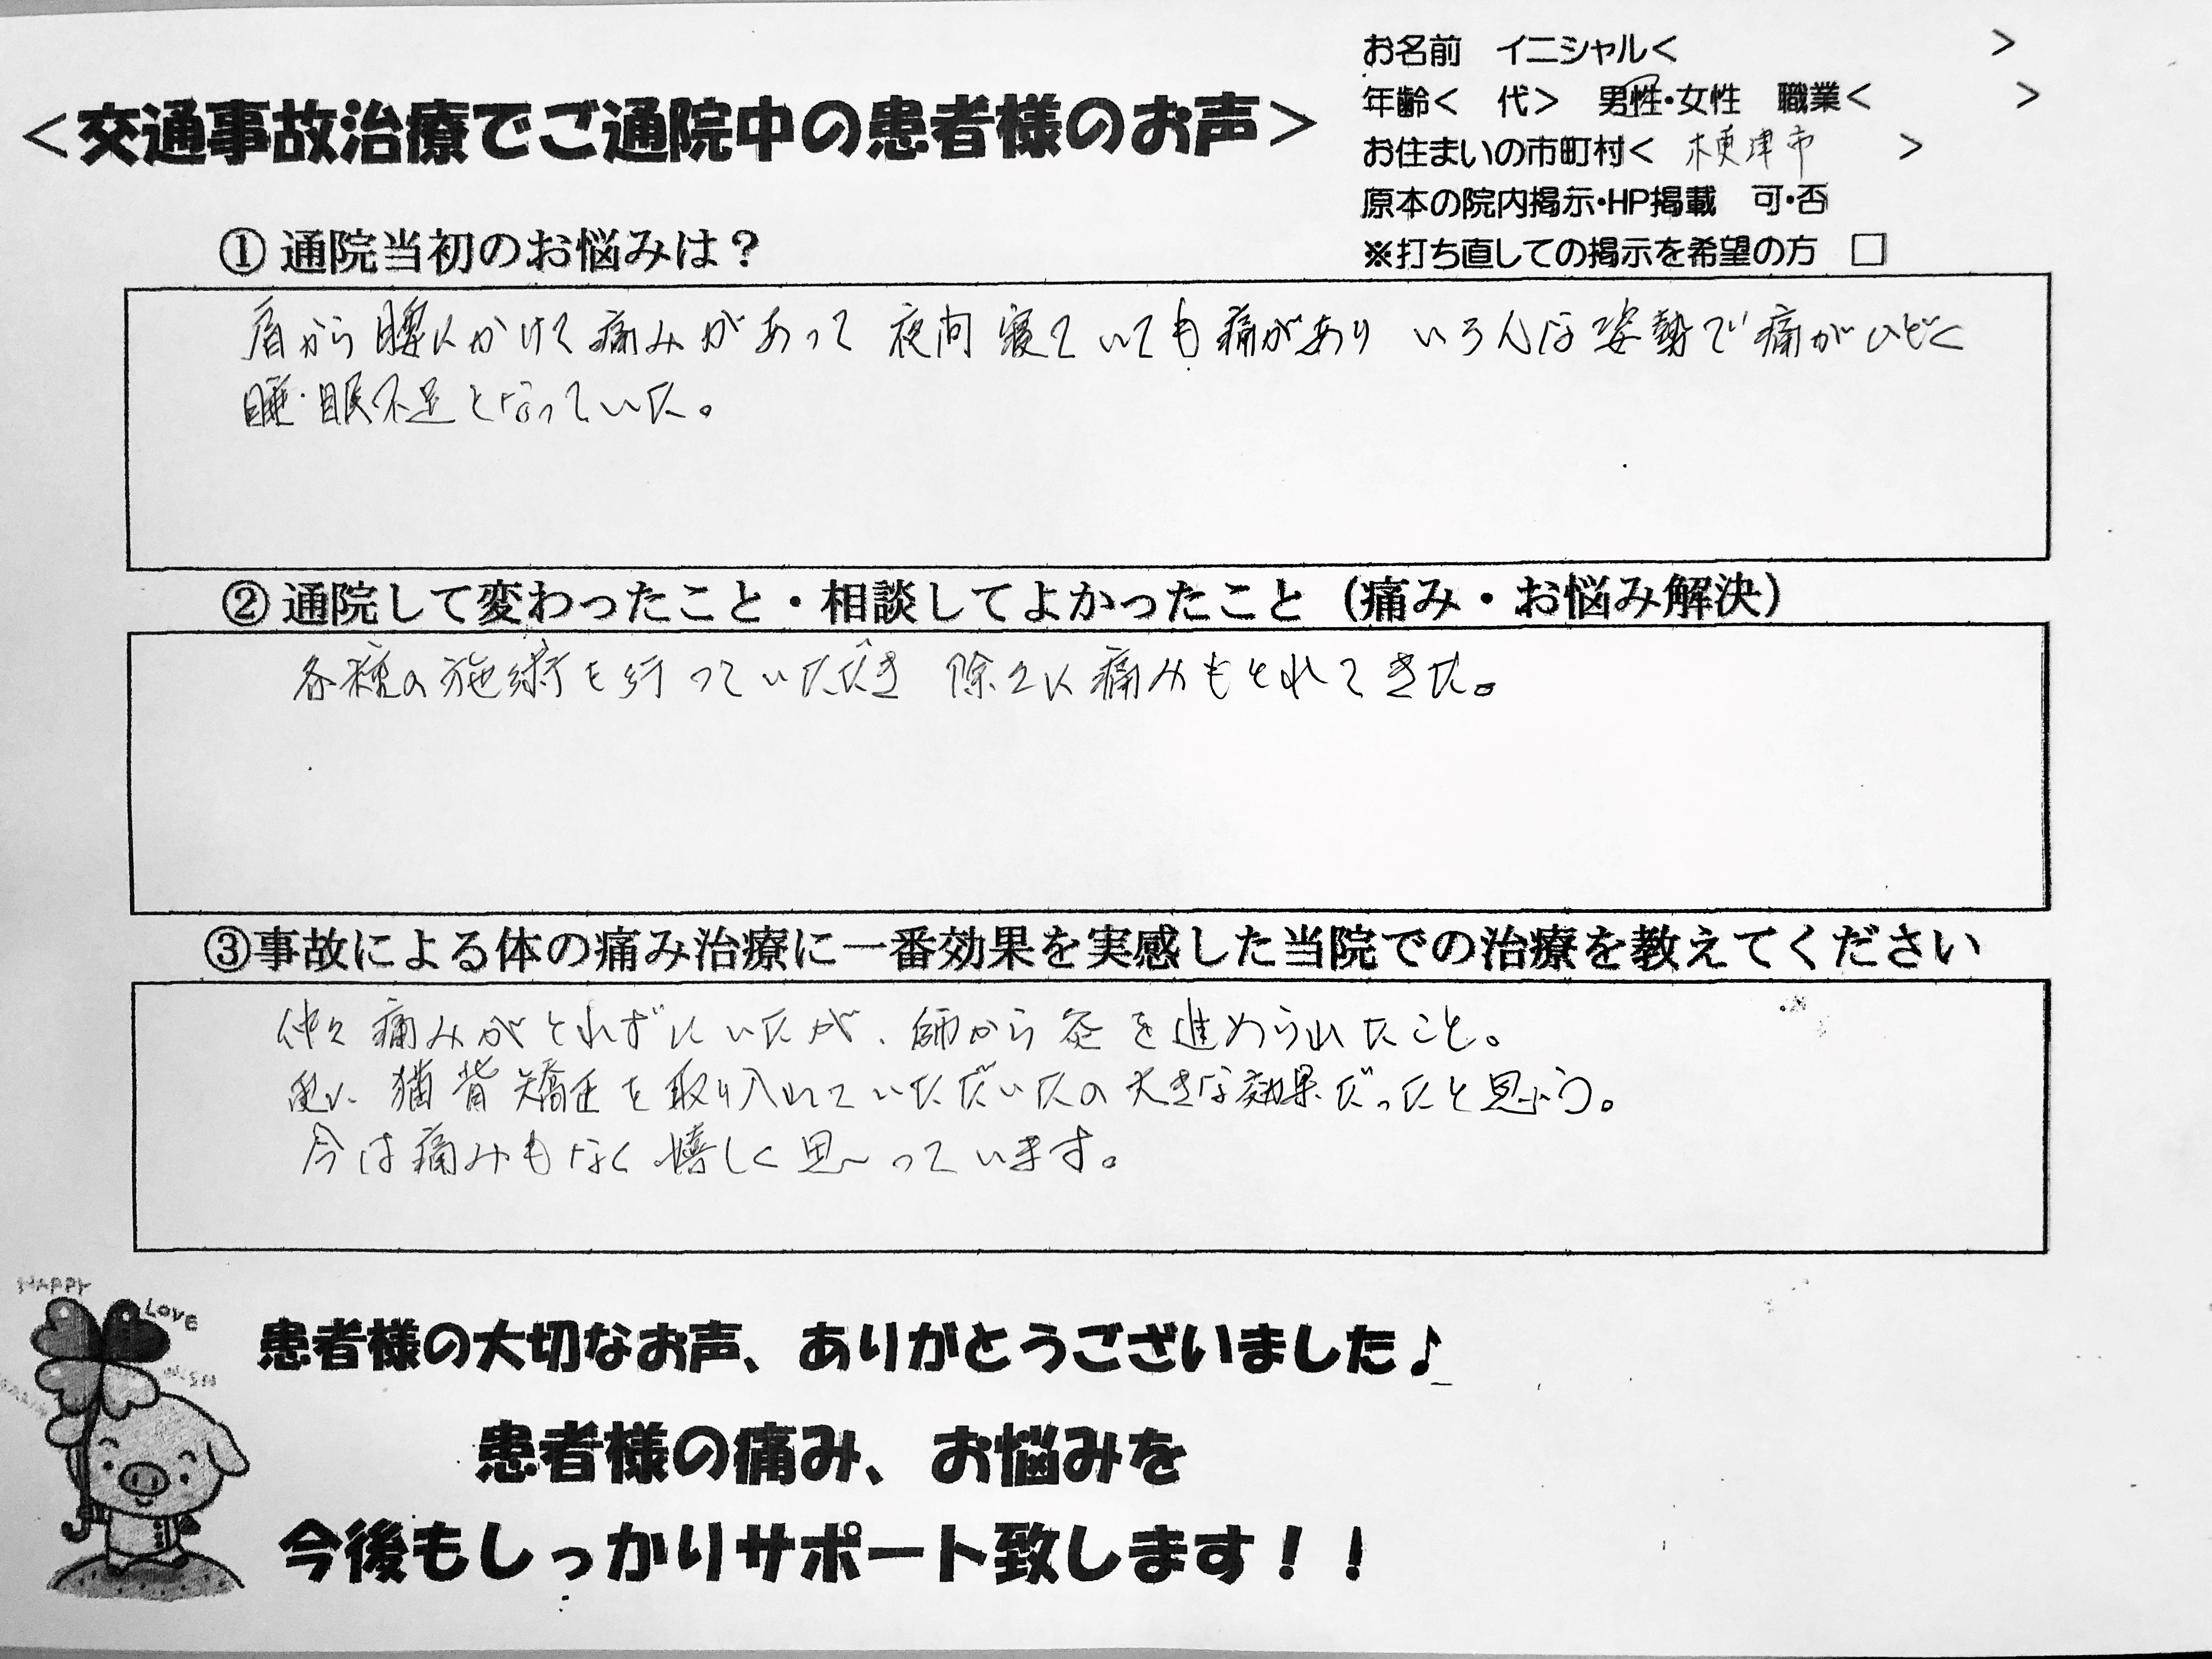 ＜交通事故治療でご通院中の患者様のお声＞
お名前　イニシャル＜　　　　　＞
年齢＜　代＞　男性・女性　職業＜　　　　＞
お住まいの市町村＜　木更津市　　＞
原本の院内掲示・HP掲載　可・否
※打ち直しての掲示を希望の方　□
①通院当初のお悩みは？
肩から腰にかけて痛みがあって 夜間 寝ていても痛があり いろんな姿勢で痛がひどく
睡眠不足となっていた。
②通院して変わったこと・相談してよかったこと（痛み・お悩み解決）
各種の施術を行っていただき 除々に痛みもとれてきた。
③事故による体の痛み治療に一番効果を実感した当院での治療を教えてください
仲々痛みがとれずにいたが、師から灸を進められたこと。
更に猫背矯正を取り入れていただいたの大きな効果だったと思う。
今は痛みもなく嬉しく思っています。
HAPPY
LOVE
患者様の大切なお声、ありがとうございました♪
患者様の痛み、お悩みを
今後もしっかりサポート致します！！